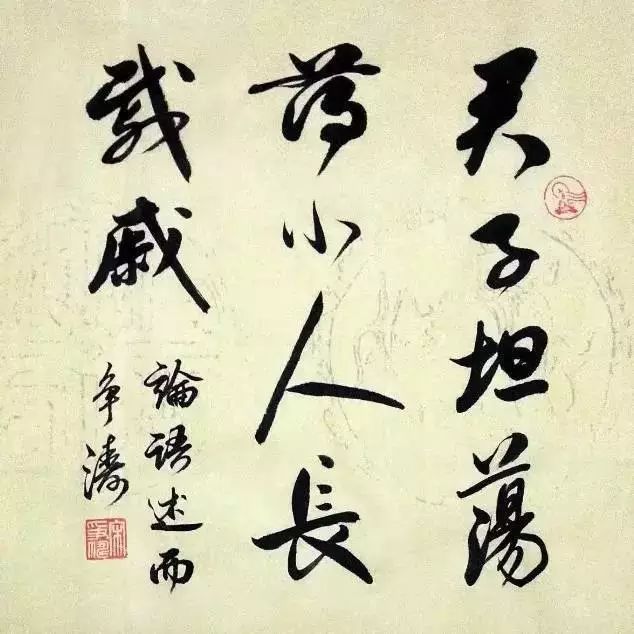 君子坦蕩
蕩小人長
戚戚
論語述而
争濤